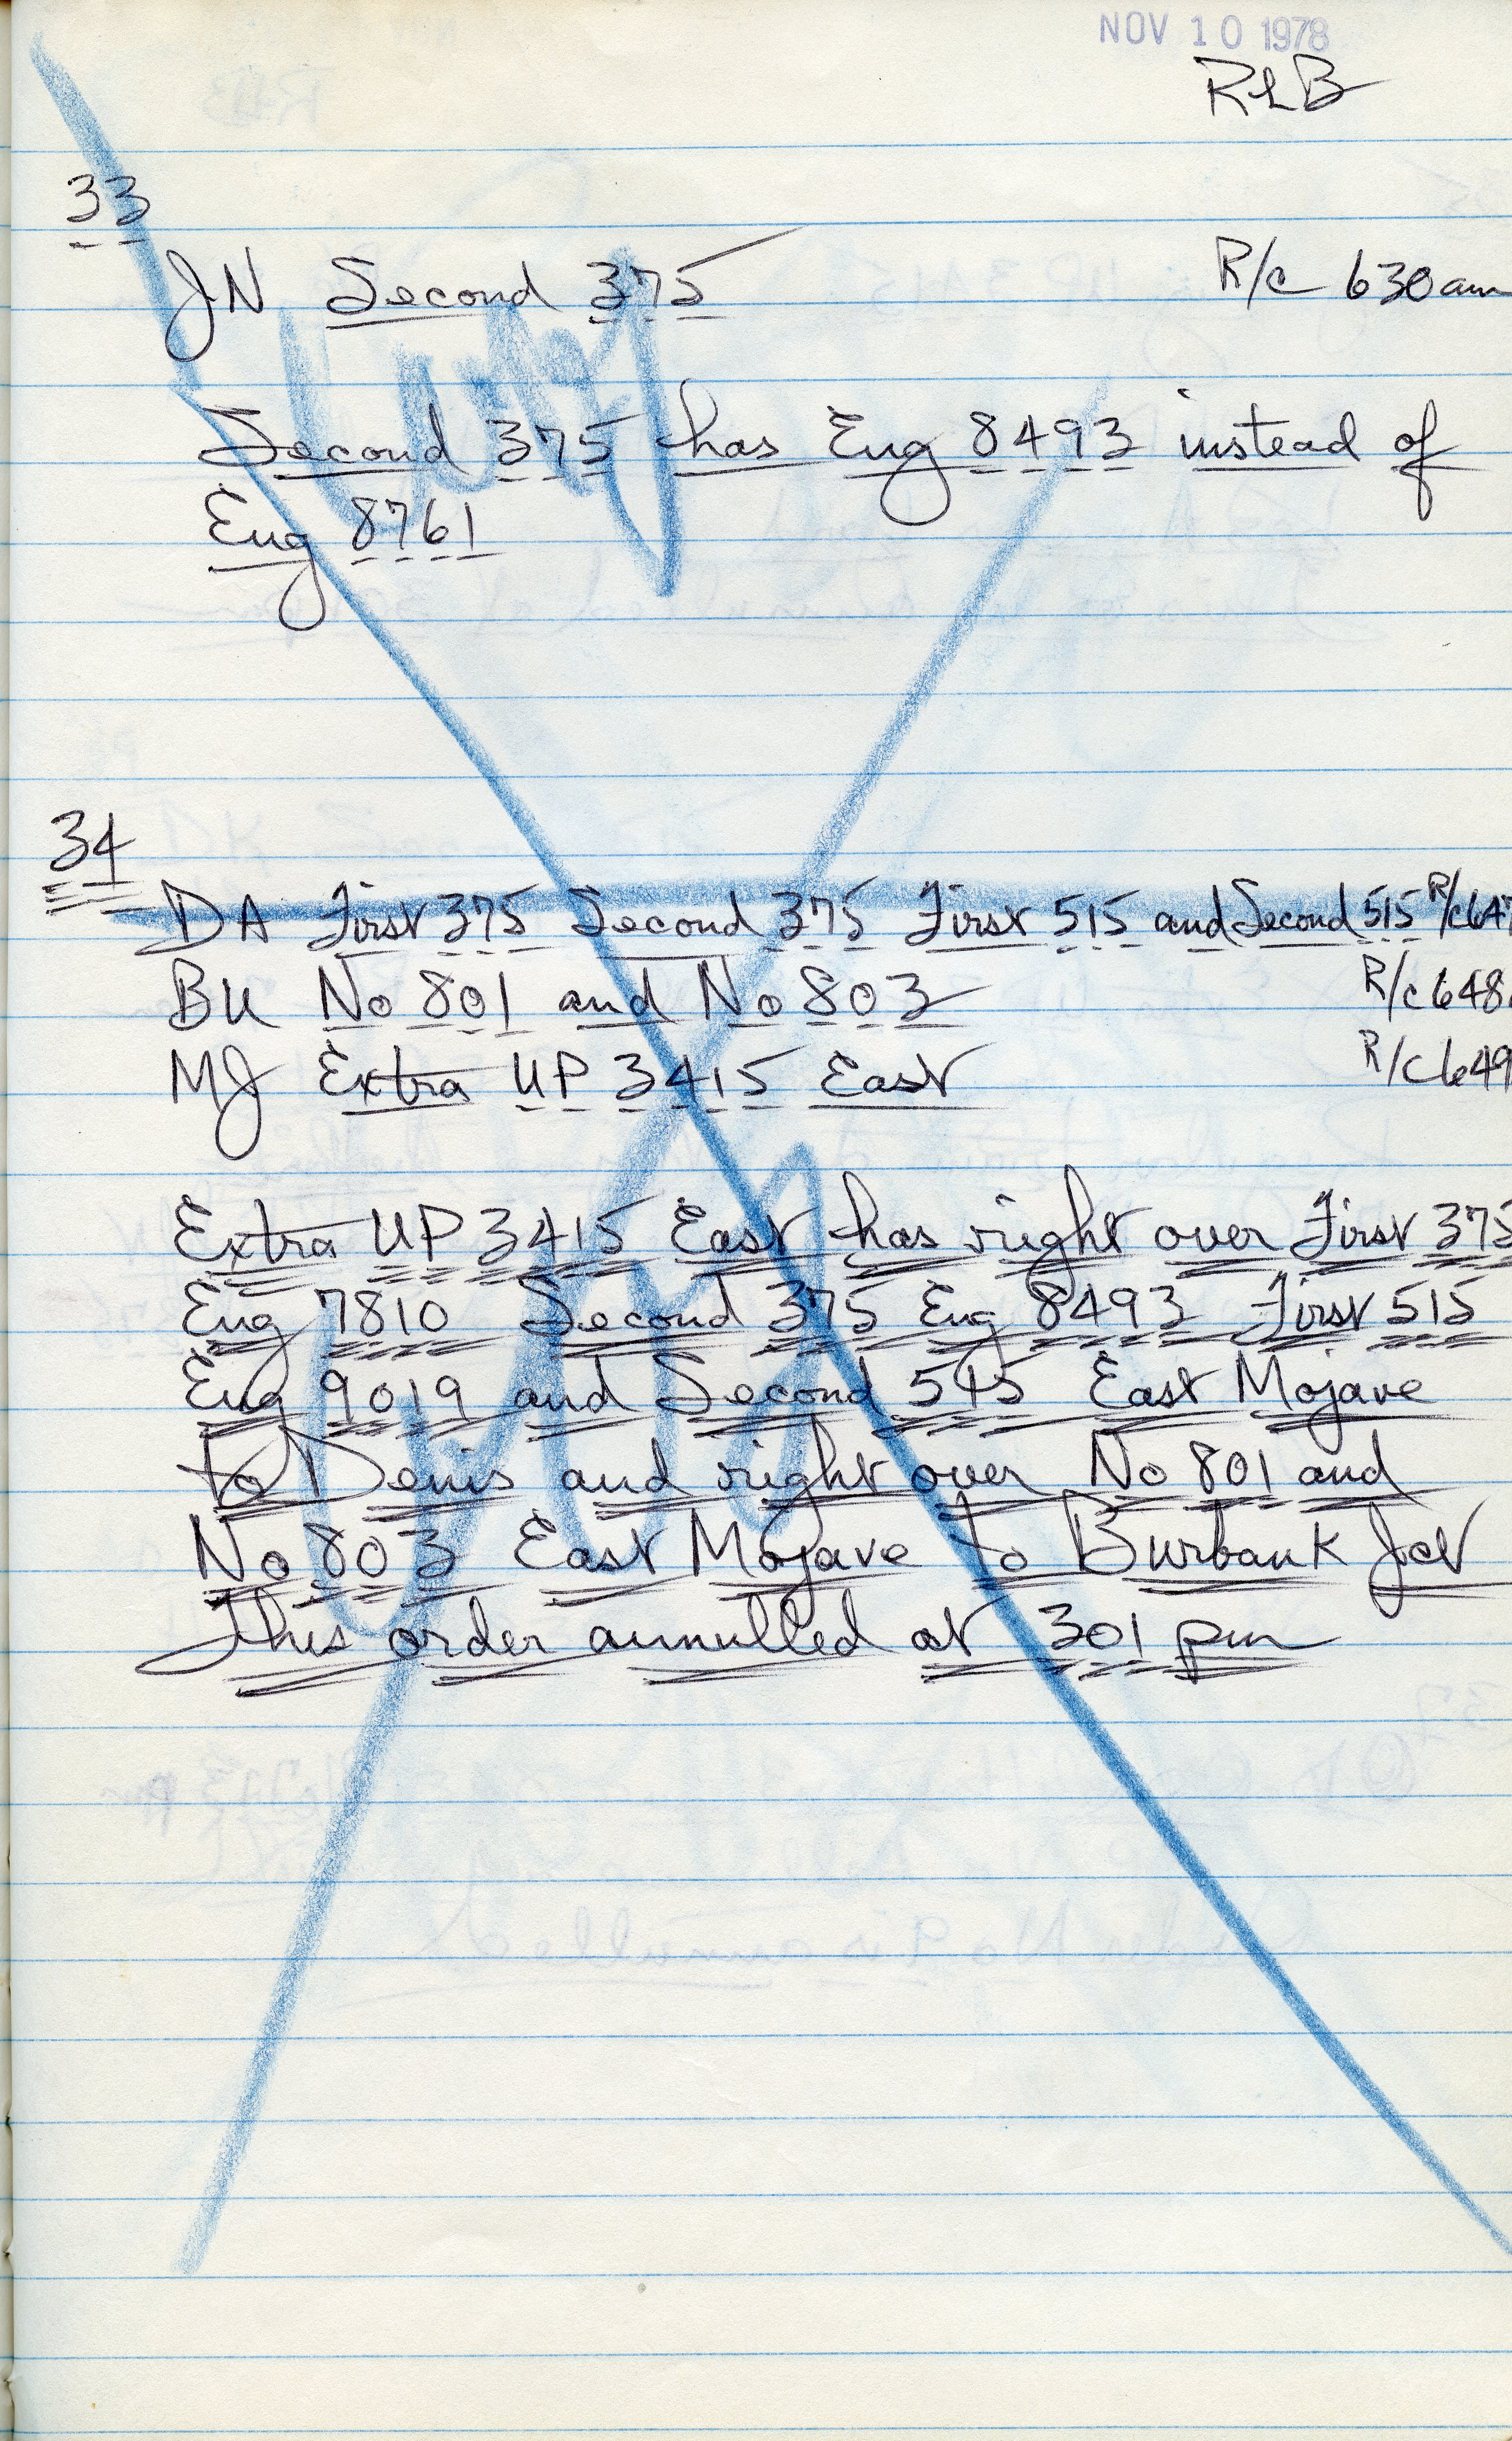 NOV 10 1978
RLB
33
JN Second 375 R/c 630am
Second 375 has Eng 8493 instead of
Eng 8761
34
DA First 375 Second 375 First 515 and Second 515 R/c 647
BU No 801 and No 803 R/c 648
MJ Extra UP 3415 East R/c 649
Extra UP 3415 East has right over First 375
Eng 7810 Second 375 Eng 8493 First 515
Eng 9019 and Second 515 East Mojave
to Denis and right over No 801 and
No 803 East Mojave to Burbank Jct
This order annulled at 301 pm